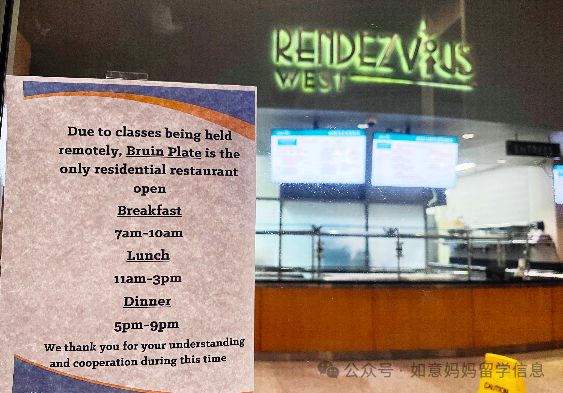 RENDEZVOUS
WEST
ENTREES
Due to classes being held
remotely, Bruin Plate is the
only residential restaurant
open
Breakfast
7am-10am
Lunch
11am-3pm
Dinner
5pm-9pm
We thank you for your understanding
and cooperation during this time
CAUTION
公众号·如意妈妈留学信息